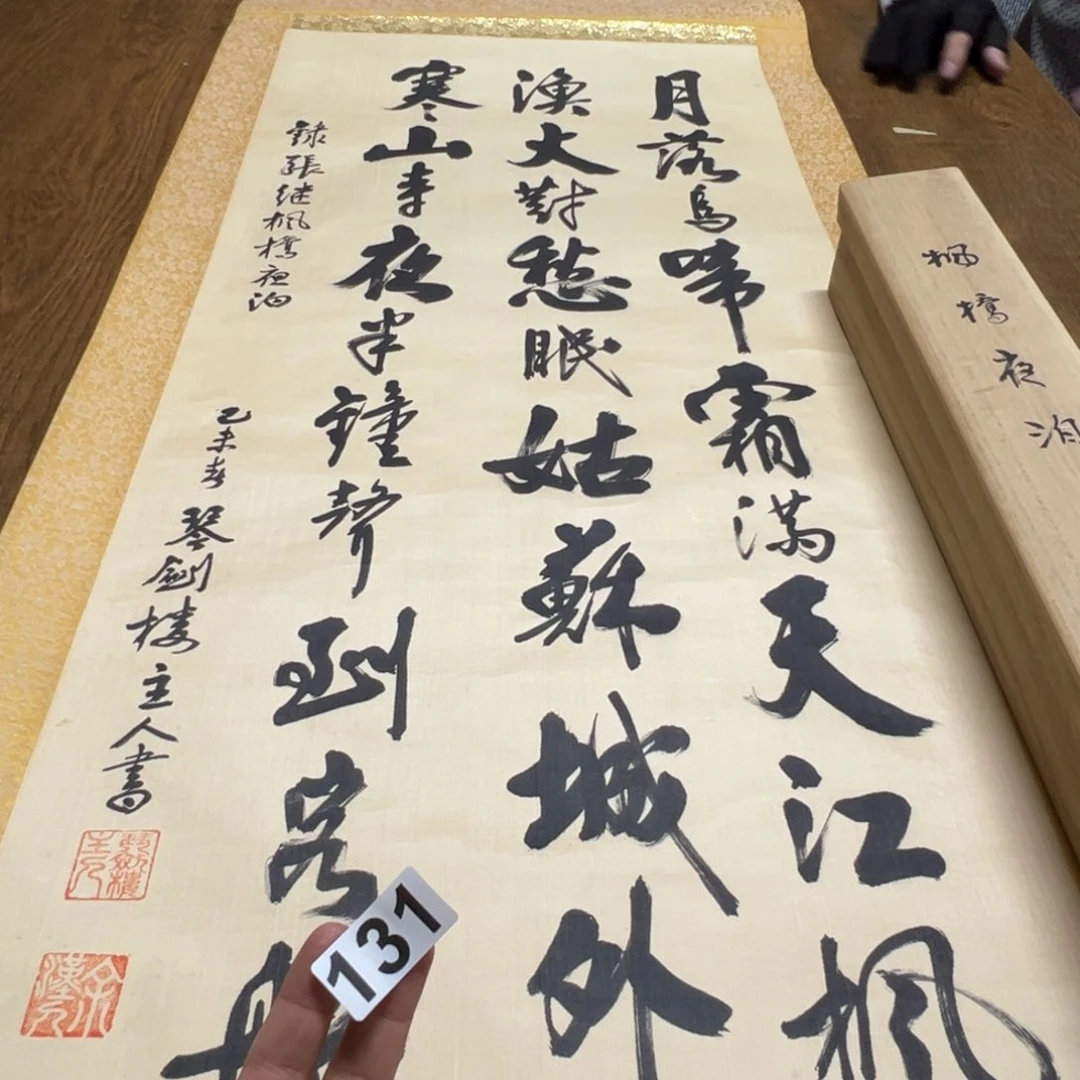 月落烏啼霜滿天江楓
漁火對愁眠姑蘇城外
寒山寺夜半鐘聲到客
録張继楓橋夜泊
乙未春 琴劍樓主人書
琴劍樓主人
楓橋夜泊
131